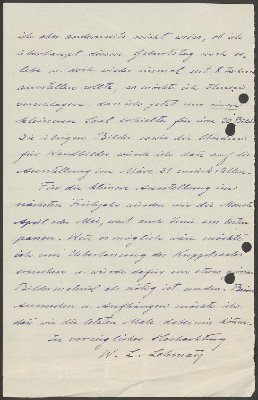 ich aber andererseits nicht weiss, ob ich
überhaupt diesen Geburtstag noch er-
lebe u. doch wieder einmal mit 8 Jahren
ausstellen sollte, so möchte ich Ihnen
vorschlagen, dass ich jetzt nur einen
kleineren Saal erhielte für ca 20 Bilder
Die übrigen Bilder sowie die Studien
für Wandbilder würde ich dann auf die
Ausstellung im März 31 zurückstellen.
Für die kleinere Ausstellung im
nächsten Frühjahr würden mir die Monate
April oder Mai, was auch Ihnen am besten
passen. Wenn es möglich wäre möchte
ich um Überlassung des Kuppelsaales
ersuchen u. würde dafür um etwas
Bildermaterial als nötig ist senden. Beim
Aussuchen u. Aufhängen möchte ich
dann wie die letzten Male dabei sein können.
In vorzüglicher Hochachtung
W. L. Lehmann